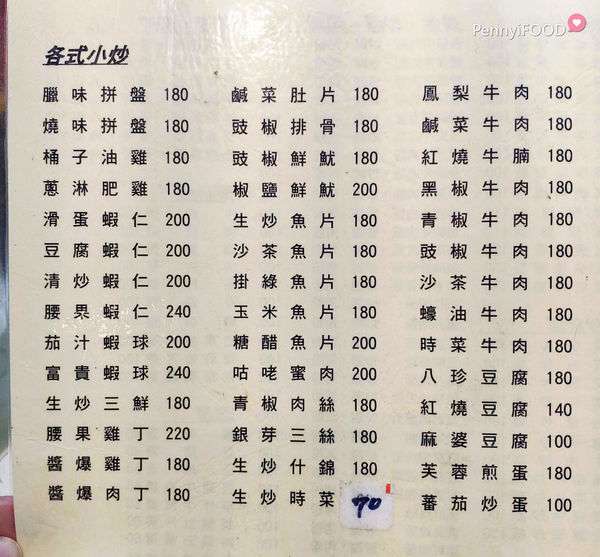 PennyiFOOD
各式小炒
臘味拼盤 180
燒味拼盤 180
桶子油雞 180
蔥淋肥雞 180
滑蛋蝦仁 200
豆腐蝦仁 200
清炒蝦仁 200
腰果蝦仁 240
茄汁蝦球 200
富貴蝦球 240
生炒三鮮 180
腰果雞丁 220
醬爆雞丁 180
醬爆肉丁 180
鹹菜肚片 180
豉椒排骨 180
豉椒鮮魷 180
椒鹽鮮魷 200
生炒魚片 180
沙茶魚片 180
掛綠魚片 180
玉米魚片 180
糖醋魚片 200
咕咾蜜肉 200
青椒肉絲 180
銀芽三絲 180
生炒什錦 180
生炒時菜 70
鳳梨牛肉 180
鹹菜牛肉 180
紅燒牛腩 180
黑椒牛肉 180
青椒牛肉 180
豉椒牛肉 180
沙茶牛肉 180
蠔油牛肉 180
時菜牛肉 180
八珍豆腐 180
紅燒豆腐 140
麻婆豆腐 100
芙蓉煎蛋 180
蕃茄炒蛋 100